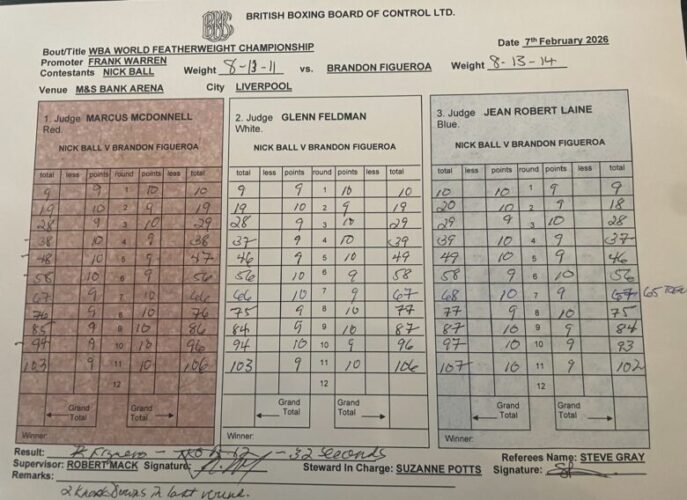 BRITISH BOXING BOARD OF CONTROL LTD.
Bout/Title WBA WORLD FEATHERWEIGHT CHAMPIONSHIP Date 7th February 2026
Promoter FRANK WARREN
Contestants NICK BALL Weight 8-13-11 vs. BRANDON FIGUEROA Weight 8-13-14
Venue M&S BANK ARENA City LIVERPOOL
1. Judge MARCUS MCDONNELL
Red.
NICK BALL V BRANDON FIGUEROA
total less points round points less total
9 9 1 10 10
19 10 2 9 19
28 9 3 10 29
38 10 4 9 38
48 10 5 9 47
58 10 6 9 56
67 9 7 10 66
76 9 8 10 76
85 9 9 10 86
10 9 96
103 9 11 10 106
12
Grand Total
Winner:
2. Judge GLENN FELDMAN
White.
NICK BALL V BRANDON FIGUEROA
total less points round points less total
9 9 1 10 10
19 10 2 9 19
28 9 3 10 29
37 9 4 10 39
46 9 5 10 49
56 10 6 9 58
66 10 7 9 67
75 9 8 10 77
84 9 9 10 87
94 10 10 9 96
103 9 11 10 106
12
Grand Total
Winner:
3. Judge JEAN ROBERT LAINE
Blue.
NICK BALL V BRANDON FIGUEROA
total less points round points less total
10 10 1 9 9
20 10 2 9 18
29 9 3 10 28
39 10 4 9 37
49 10 5 9 46
58 9 6 10 56
68 10 7 9 65
77 9 8 10 75
87 10 9 9 84
97 10 10 9 93
107 10 11 9 102
12
Grand Total
Winner:
Result: B Figueroa - KO 12 - 32 seconds Referees Name: STEVE GRAY
Supervisor: ROBERT MACK Signature: Steward In Charge: SUZANNE POTTS Signature:
Remarks:
2 Knock Downs in last round.